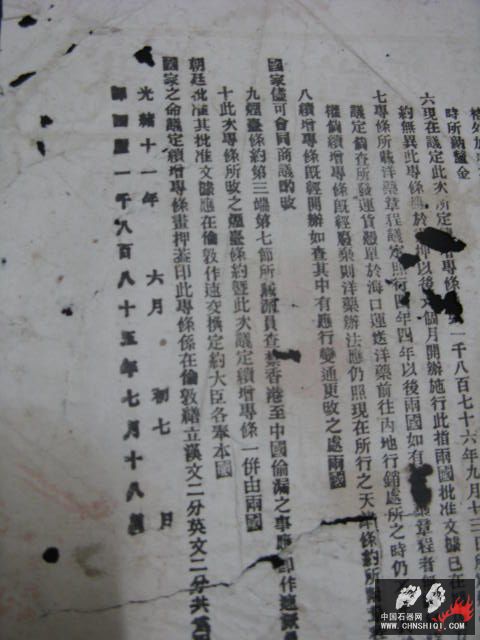 格外加
時所納釐金
六現在議定此次所定增專條 一千八百七十六年九月十三日所
約無異此專條 於 押以後六個月開辦施行此指兩國批准文據已在
七專條所載洋藥章程議定照行四年四年以後兩國如有 章程者
議定倘查所發運貨憑單於海口運送洋藥前往內地行銷處所之時仍
權倘續增專條既經廢棄則洋藥辦法應仍照現在所行之天津條約所
八續增專條既經開辦如查其中有應行變通更改之處兩國
國家儘可會同商議酌改
九煙臺條約第三端第七節所載派員查禁香港至中國偷漏之事應即作速
十此次專條所改之煙臺條約暨此次議定續增專條一併由兩國
朝廷批准其批准文據應在倫敦作速交換定約大臣各奉本國
國家之命議定續增專條畫押蓋印此專條係在倫敦繕立漢文二分英文二分共
光緒十一年 六月 初七 日
一千八百八十五年七月十八
中国石器网
WWW.CHNSHIQI.COM